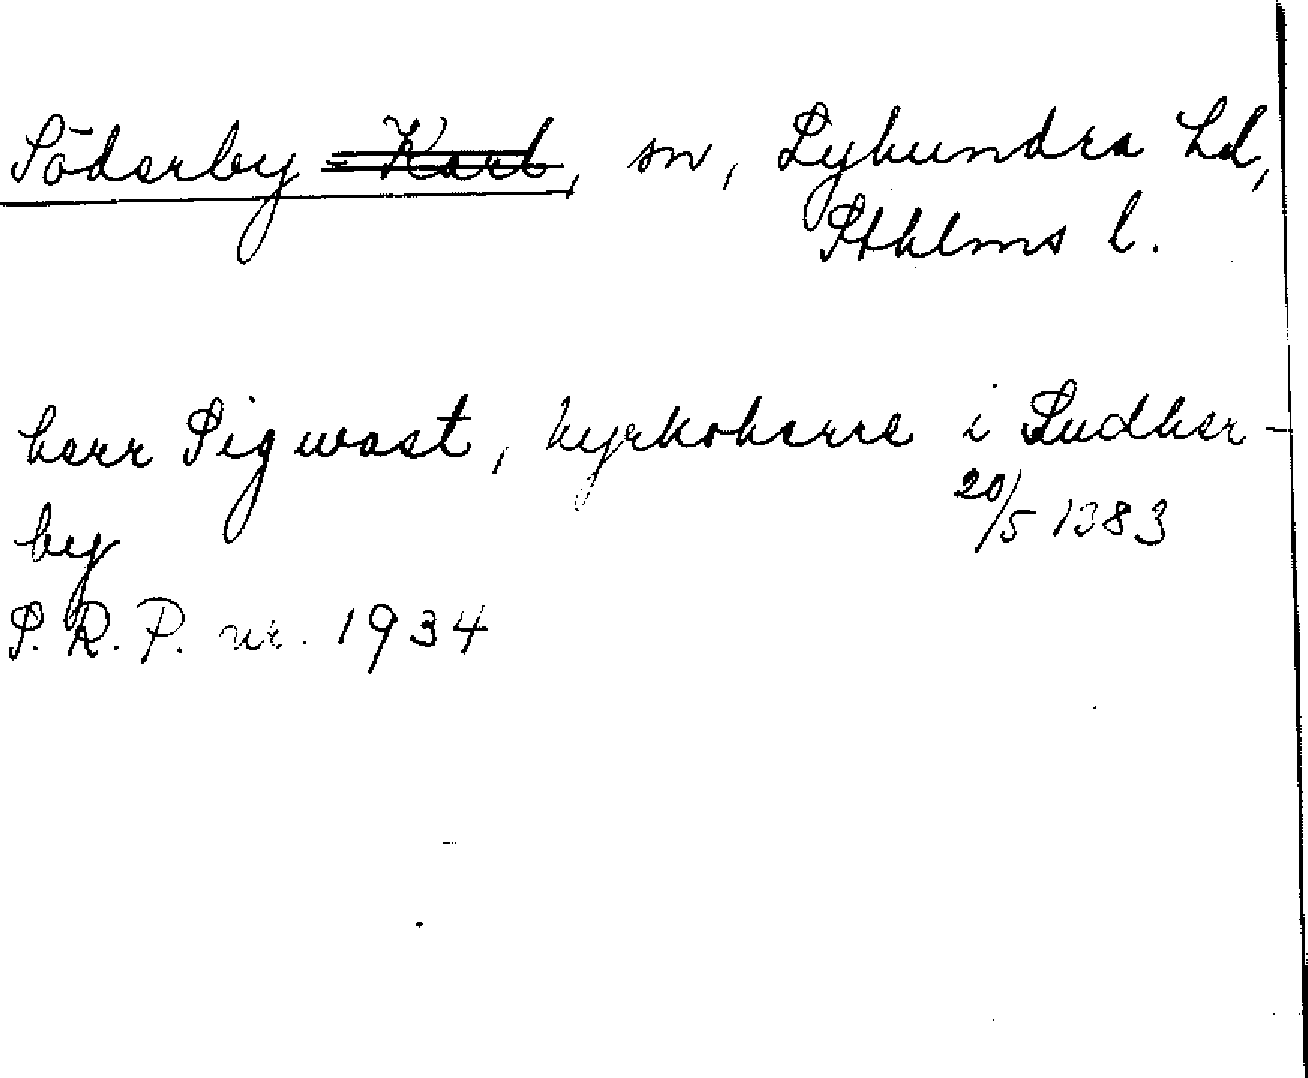 Söderby - Karl, sn, Lyhundra hd,
Sthlms l.
herr Sigwast, kyrkoherre i Sudher-
by 20/5 1383
S. R. P. nr. 1934